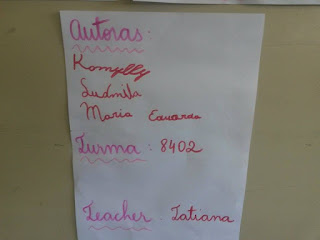 Autoras:
Komylly
Ludmila
Maria Eduarda
Turma: 8402
Teacher: Tatiana